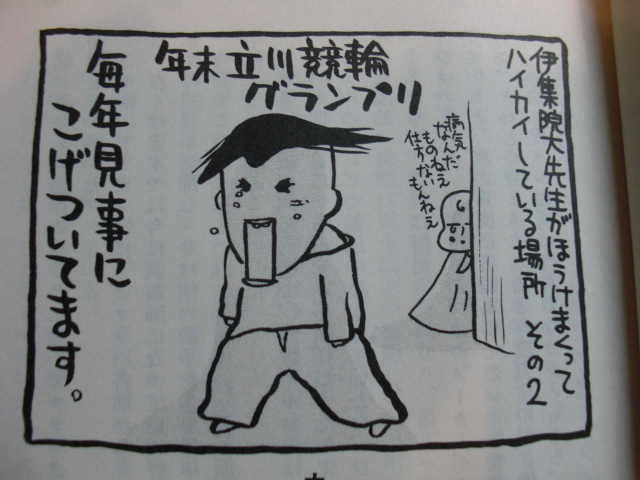 伊集院大先生がほうけまくって
ハイカイしている場所 その2
年末立川競輪
グランプリ
病気
なんだ
ものねえ
仕方ない
もんねえ
毎年見事に
こげついてます。